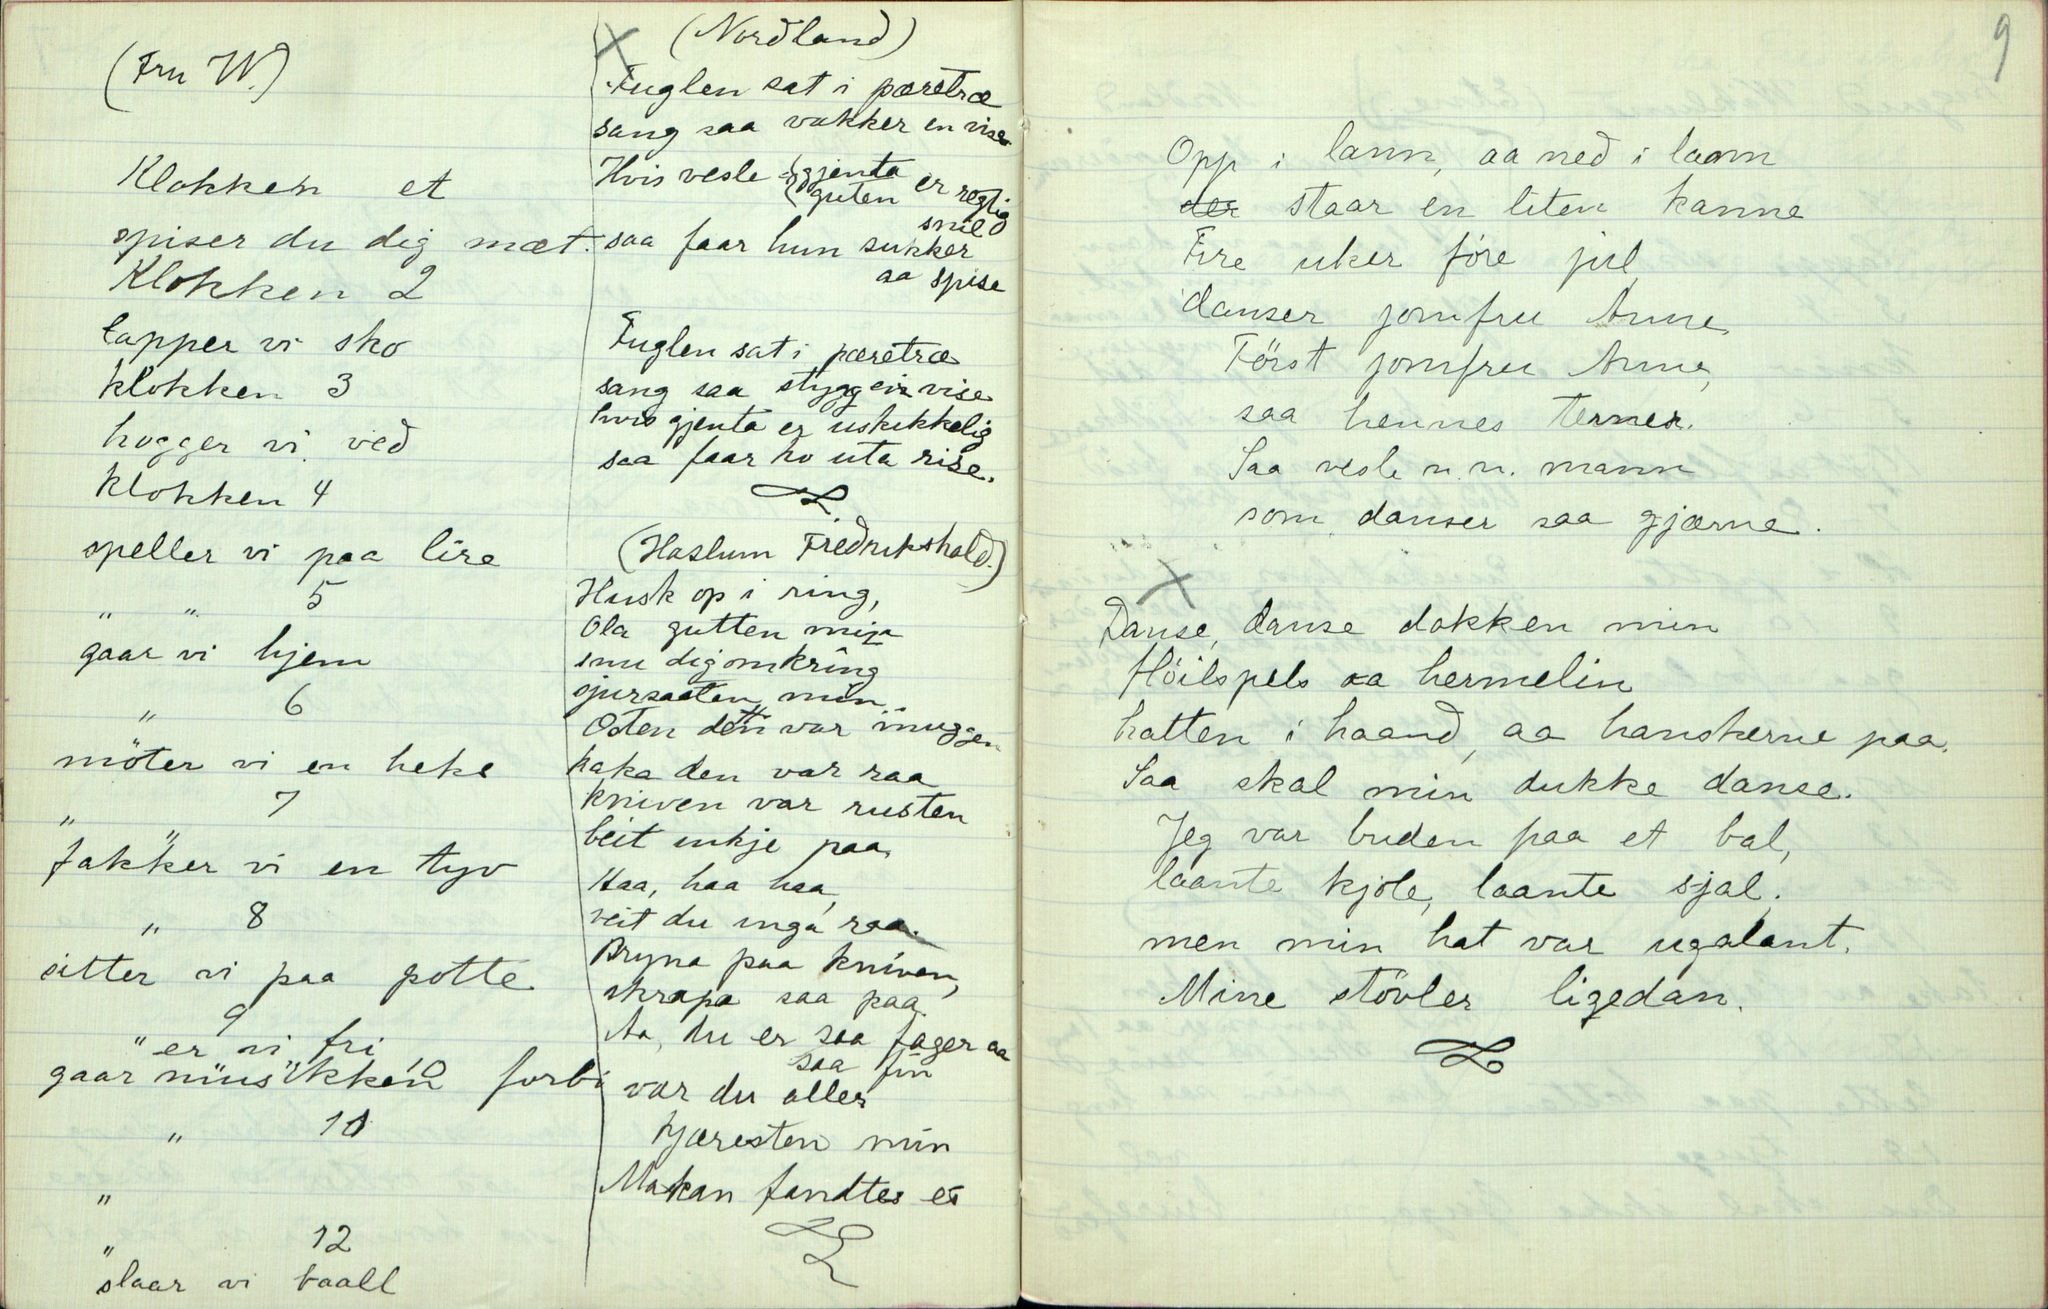 (Fru W.)
Klokken et
spiser du dig mæt.
Klokken 2
lapper vi sko
klokken 3
hogger vi ved
klokken 4
speller vi paa lire
" " 5
gaar vi hjem
" 6
möter vi en heks
" 7
fakker vi en tyv
" 8
sitter vi paa potte
9
" er vi fri
gaar musikken forbi
" 10
"
" 12
slaar vi baall
(Nordland)
Fuglen sat i pæretræ
sang saa vakker en vise
Hvis vesle gjenta
guten er regtig
snild
saa faar hun sukker
aa spise
Fuglen sat i pæretræ
sang saa stygg ein vise
hvis gjenta er uskikkelig
saa faar ho uta rise.
(Haslum Fredrikshald.)
Husk op i ring,
Ola gutten min
snu dig omkring
min
Osten den var muggen
kaka den var raa
kniven var rusten
beit inkje paa,
Haa, haa haa,
veit du inga raa.
Bryna paa kniven,
skrapa saa paa
Aa, du er saa fager aa
saa fin
var du aller
kjæresten min
Makan fandtes ei
9
Opp i lann, aa ned i laam
der staar en liten kanne
Fire uker före jul
danser jomfru Anne
Först jomfru Anne,
saa hennes terner.
Saa vesle n.n. mann
som danser saa gjærne.
Danse, danse dokken min
Höilspels aa hermelin
hatten i haand, aa hanskerne paa.
Saa skal min dukke danse.
Jeg var buden paa et bal,
laante kjole, laante sjal.
men min hat var ugalant.
Mine stövler ligedan.